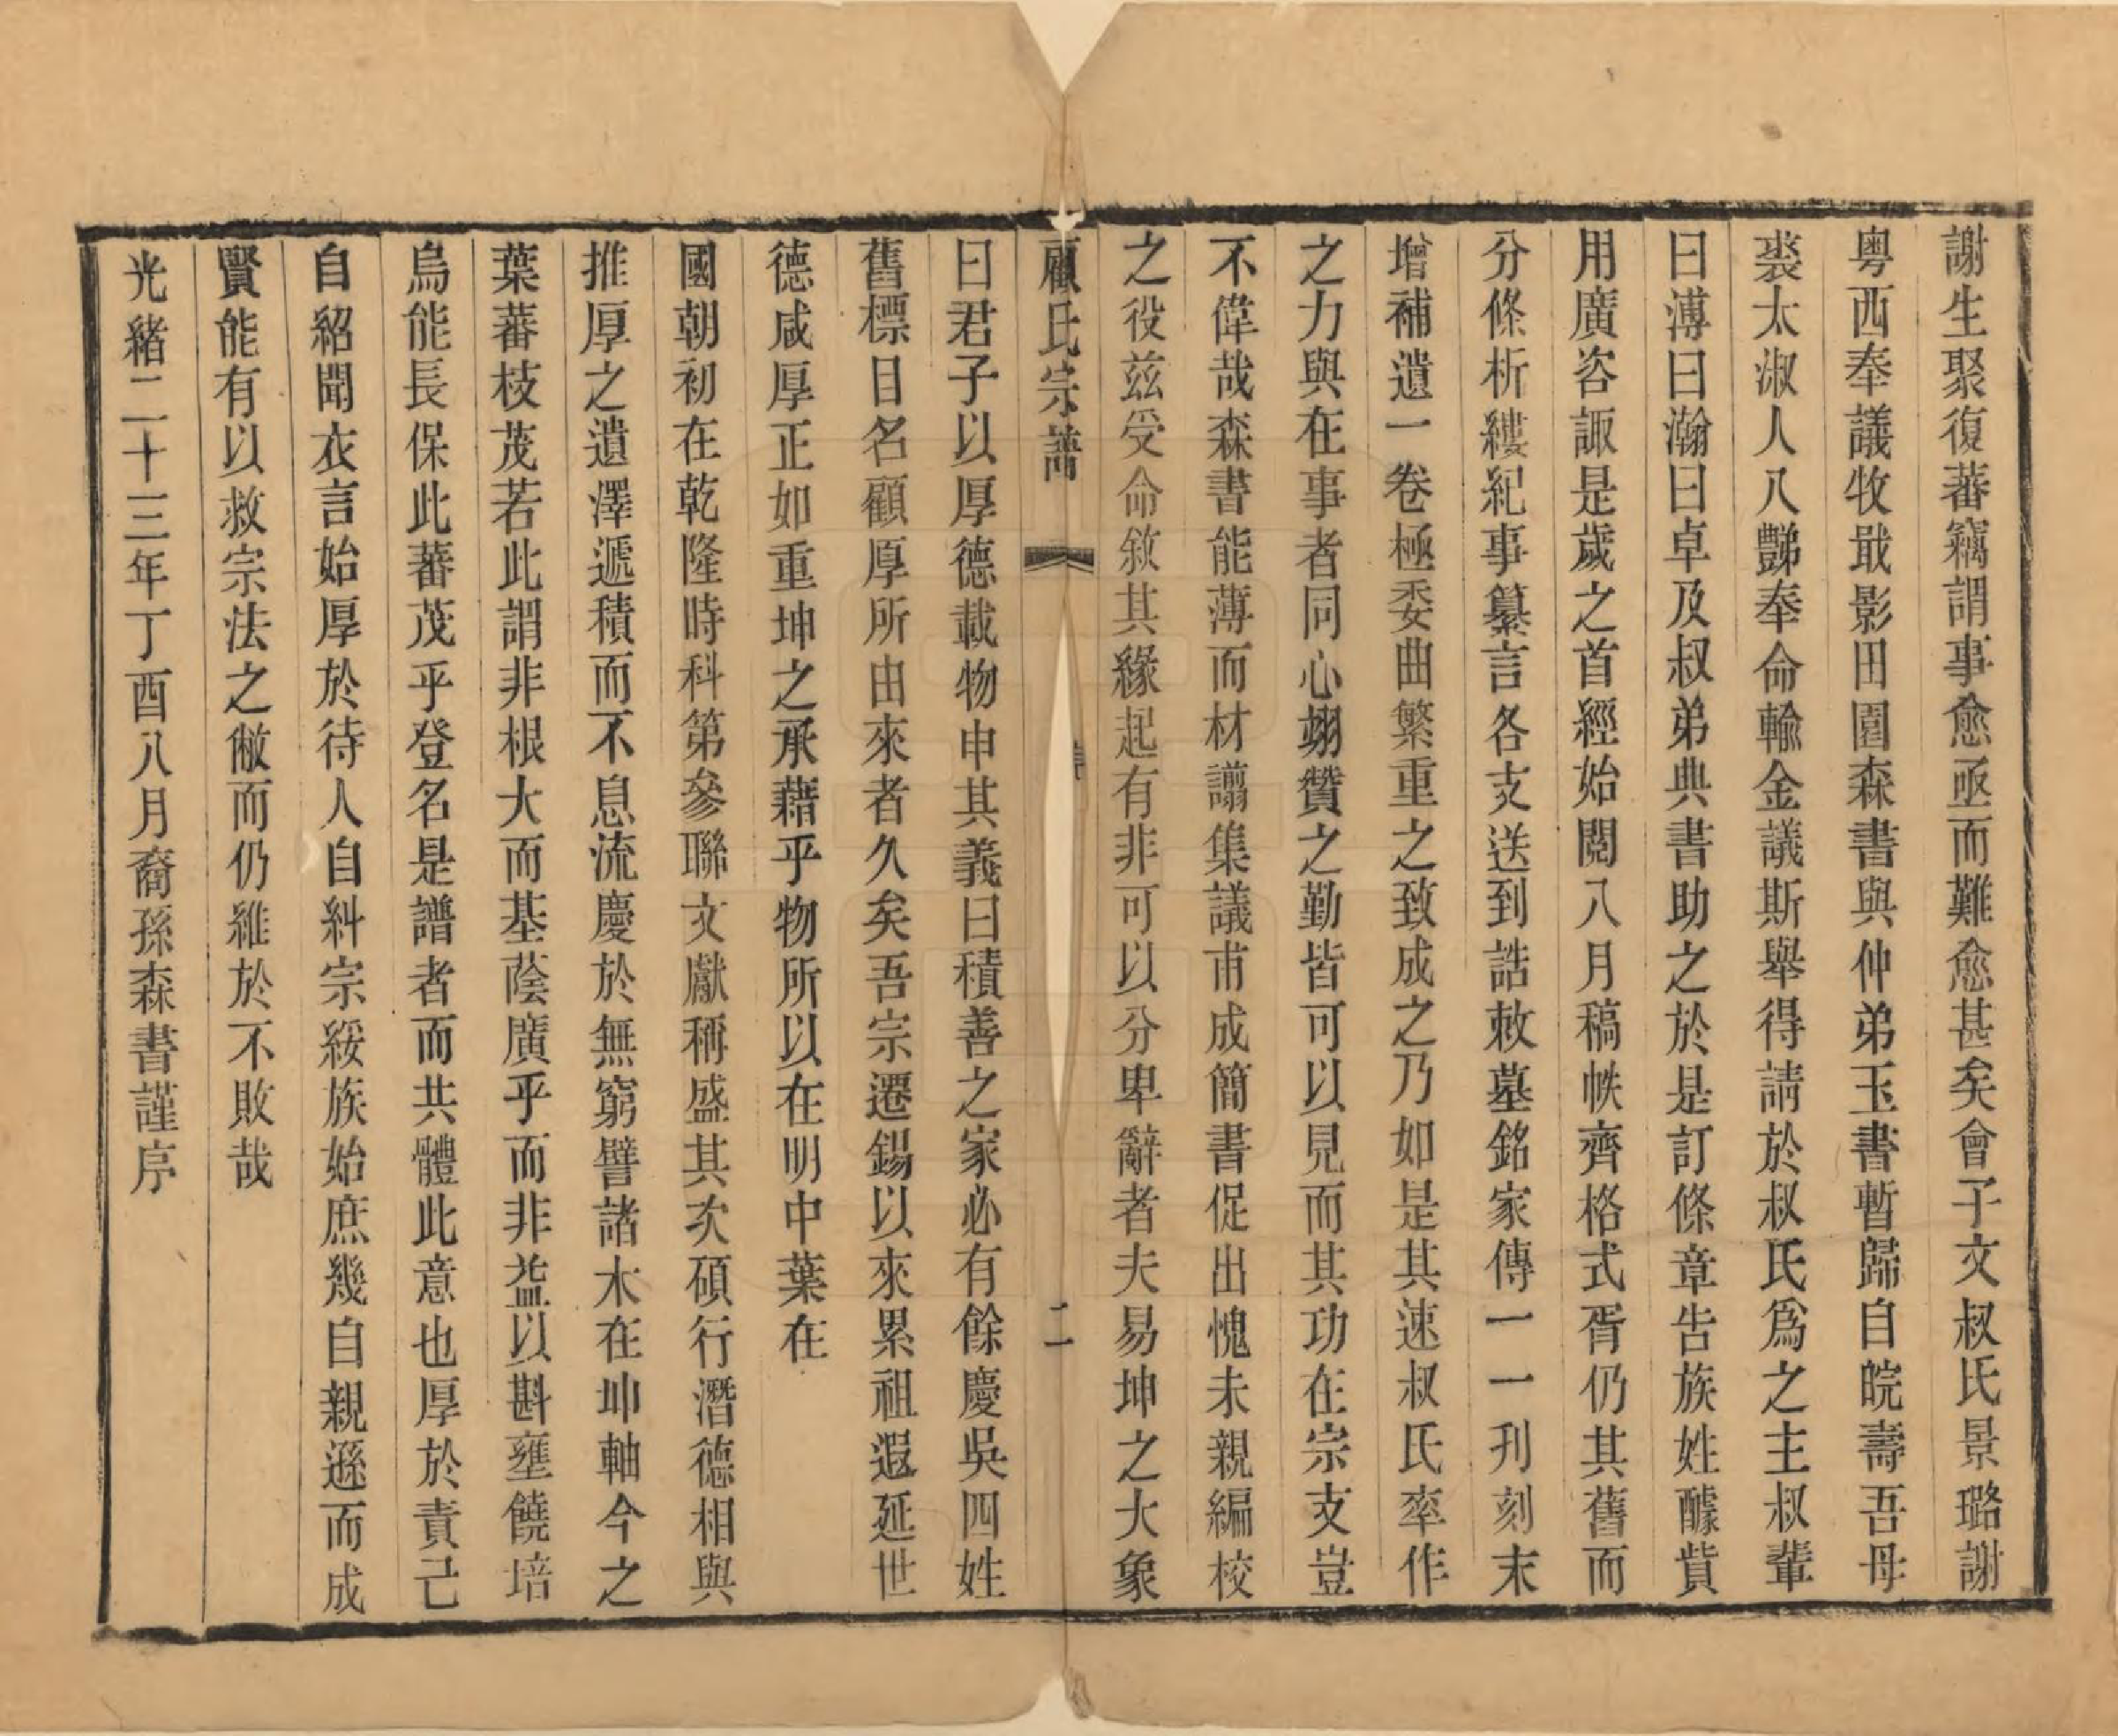 謝生聚復蕃竊謂事愈亟而難愈甚矣會子文叔氏景璐謝
粵西奉議牧戢影田園森書與仲弟玉書暫歸自皖壽吾母
裘太淑人八豒奉命輸金議斯舉得請於叔氏爲之主叔輩
曰溥曰瀚曰卓及叔弟典書助之於是訂條章告族姓醵貲
用廣咨諏是歲之首經始閱八月稿帙齊格式胥仍其舊而
分條析縷紀事纂言各支送到誥敕墓銘家傳一一刋刻末
增補遺一卷極委曲繁重之致成之乃如是其速叔氏率作
之力與在事者同心翊贊之勤皆可以見而其功在宗支豈
不偉哉森書能薄而材譾集議甫成簡書促出愧未親編校
之役茲受命敘其緣起有非可以分卑辭者夫易坤之大象
顧氏宗譜 二
曰君子以厚德載物申其義曰積善之家必有餘慶吳四姓
舊標目名顧厚所由來者久矣吾宗遷錫以來累祖遐延世
德咸厚正如重坤之承藉乎物所以在明中葉在
國朝初在乾隆時科第參聯文獻稱盛其次碩行潛德相與
推厚之遺澤遞積而不息流慶於無窮譬諸木在坤軸今之
葉蕃枝茂若此謂非根大而基蔭廣乎而非益以斟壅饒培
烏能長保此蕃茂乎登名是譜者而共體此意也厚於責己
自紹聞衣言始厚於待人自糾宗綏族始庶幾自親遜而成
賢能有以救宗法之敝而仍維於不敗哉
光緒二十三年丁酉八月裔孫森書謹序